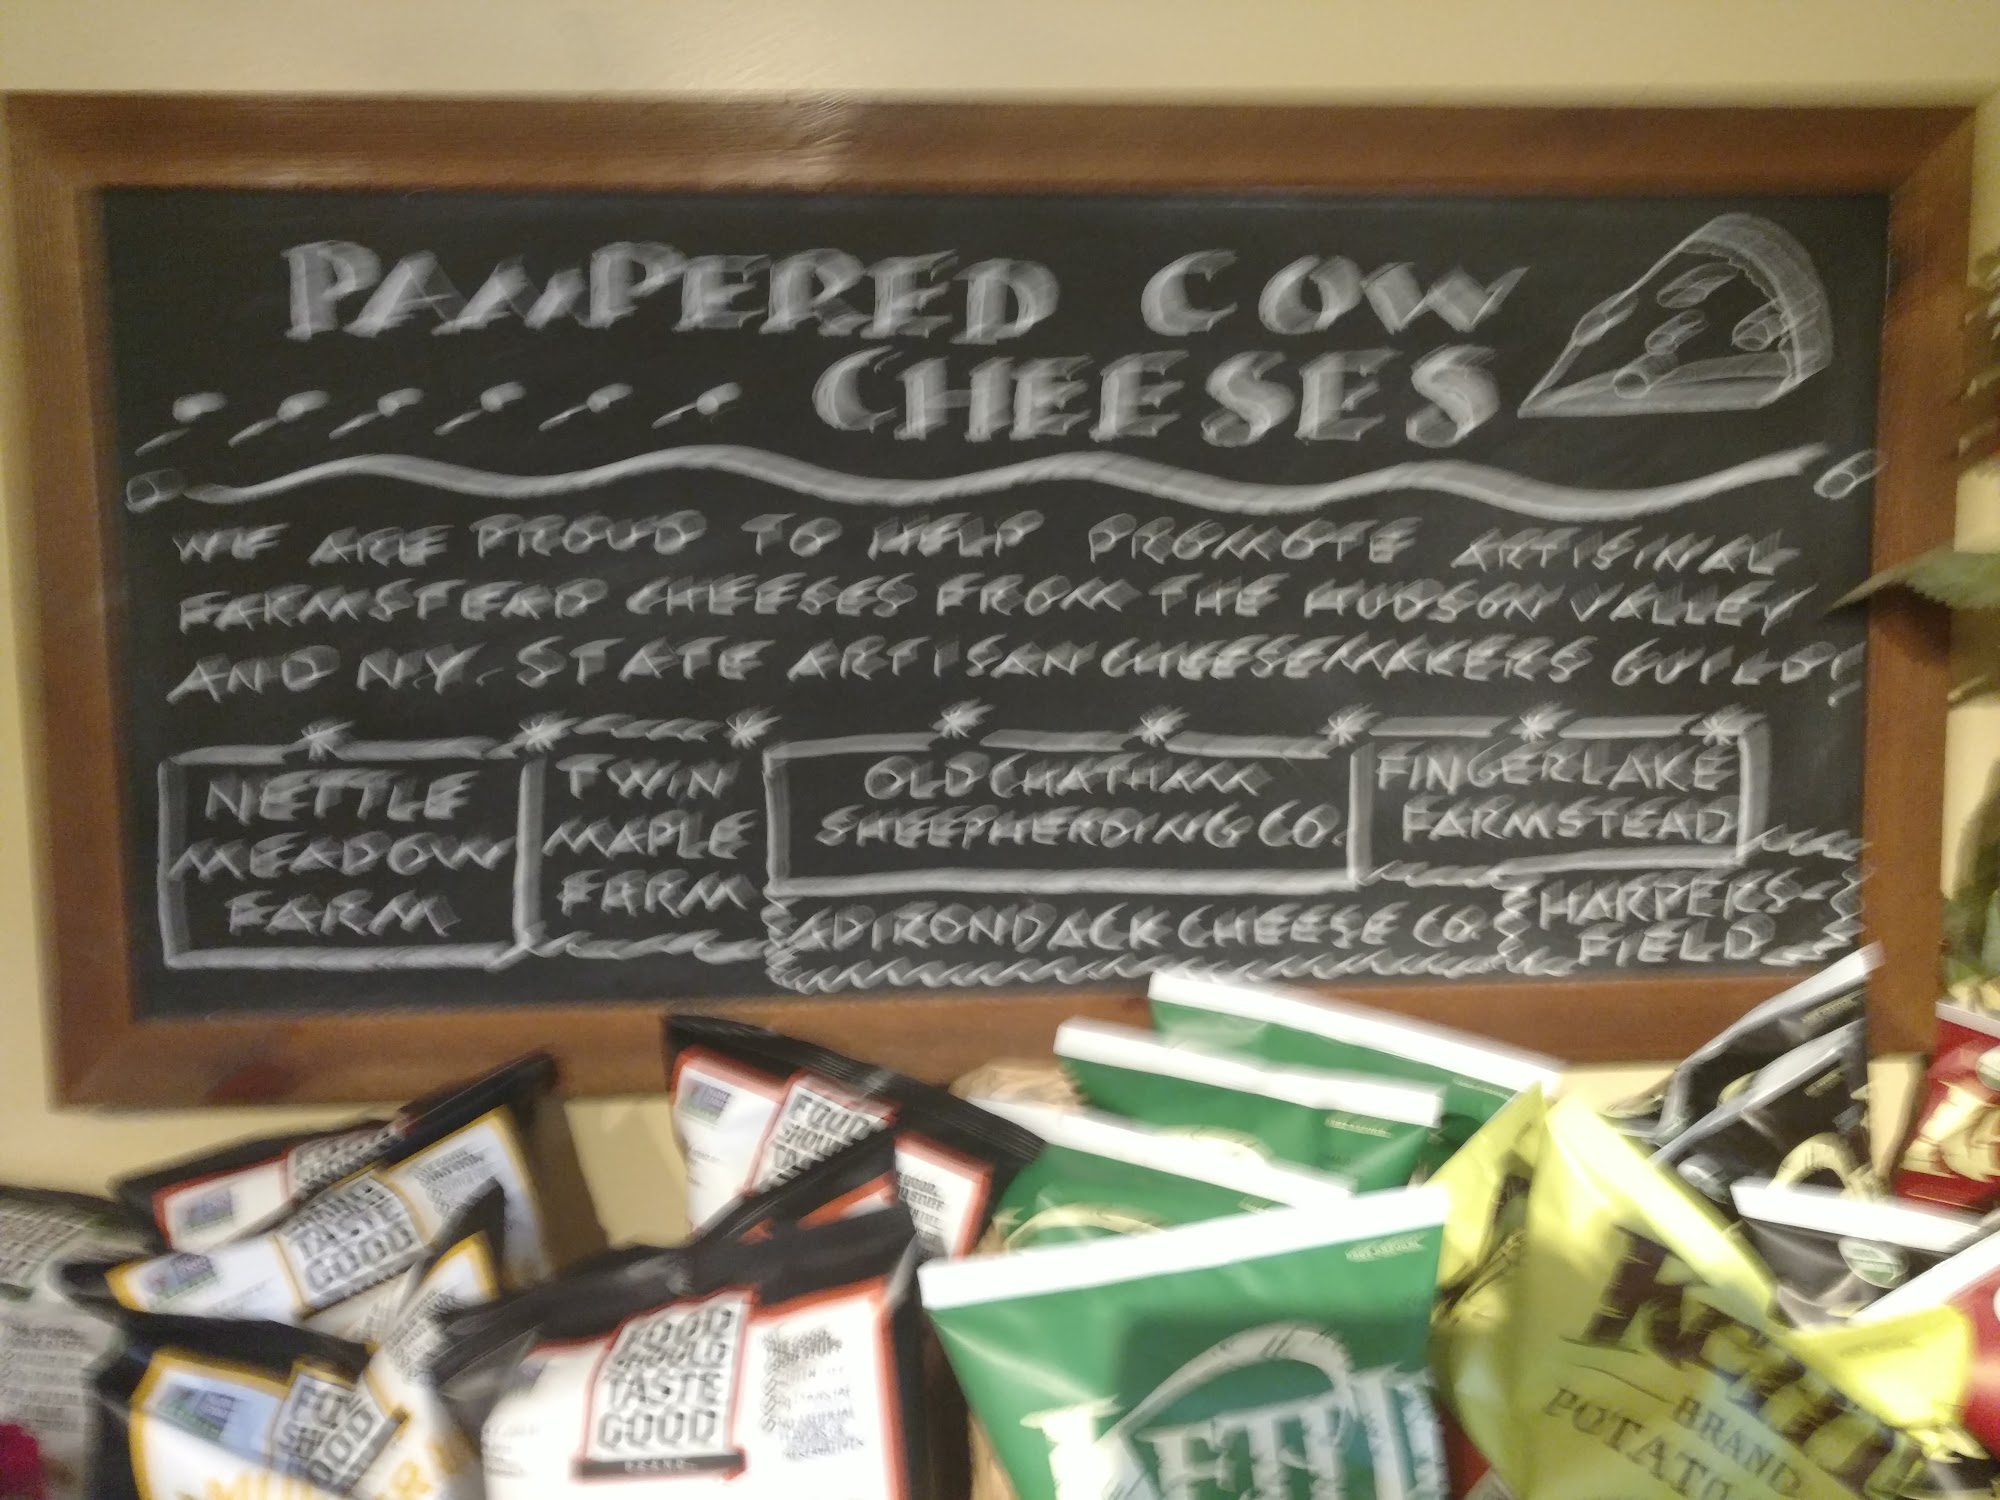 PAMPERED COW
CHEESES
WE ARE PROUD TO HELP PROMOTE ARTISINAL
FARMSTEAD CHEESES FROM THE HUDSON VALLEY
AND N.Y. STATE ARTISAN CHEESEMAKERS GUILD!
NETTLE
MEADOW
FARM
TWIN
MAPLE
FARM
OLD CHATHAM
SHEEPHERDING CO.
FINGERLAKE
FARMSTEAD
ADIRONDACK CHEESE CO.
HARPERS-
FIELD
FOOD
SHOULD
TASTE
GOOD
TASTE
GOOD
FOOD
SHOULD
TASTE
GOOD
BRAND
KETTLE
BRAND
POTATO